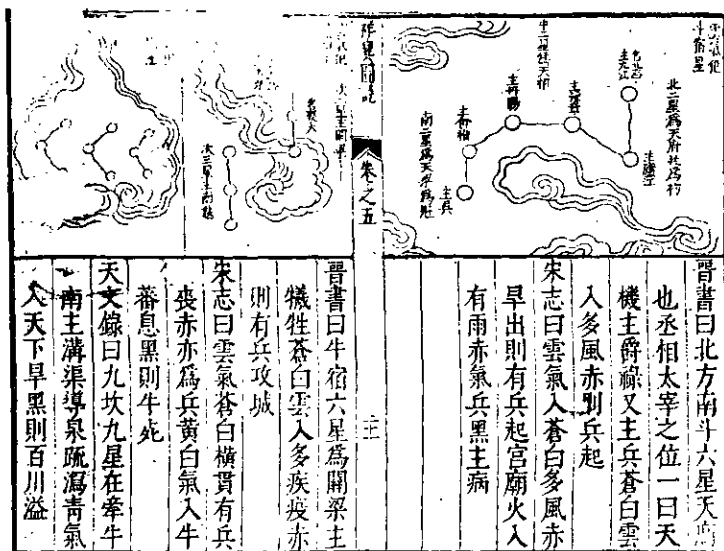 斗宿星
北二星爲天府
主兵
南二星爲天
晉書曰北方南斗六星天
也丞相太宰之位一曰天
機主爵祿又主兵蒼白雲
入多風赤則兵起
宋志曰雲氣入蒼白多風赤
旱出則有兵起宮廟火入
有雨赤氣兵黑主病
卷之五
次三星主南
晉書曰牛宿六星爲關梁主
犧牲蒼白雲入多疾疫赤
則有兵攻城
宋志曰雲氣蒼白橫貫有兵
喪赤亦爲兵黃白氣入牛
蕃息黑則牛死
天文錄曰九坎九星在牽牛
南主溝渠導泉疏瀉青氣
入天下旱黑則百川溢